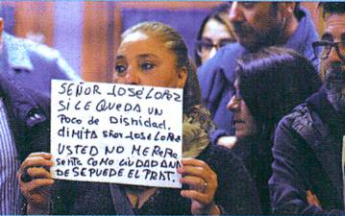 SEÑOR JOSÉ LOPEZ
SI LE QUEDA UN
POCO DE DISNIDAD,
DIMITA SÑOR JOSE LOPEZ
USTED NO MERERE
COMO CIUDADANA
DE SEPUEDE EL PRAT.